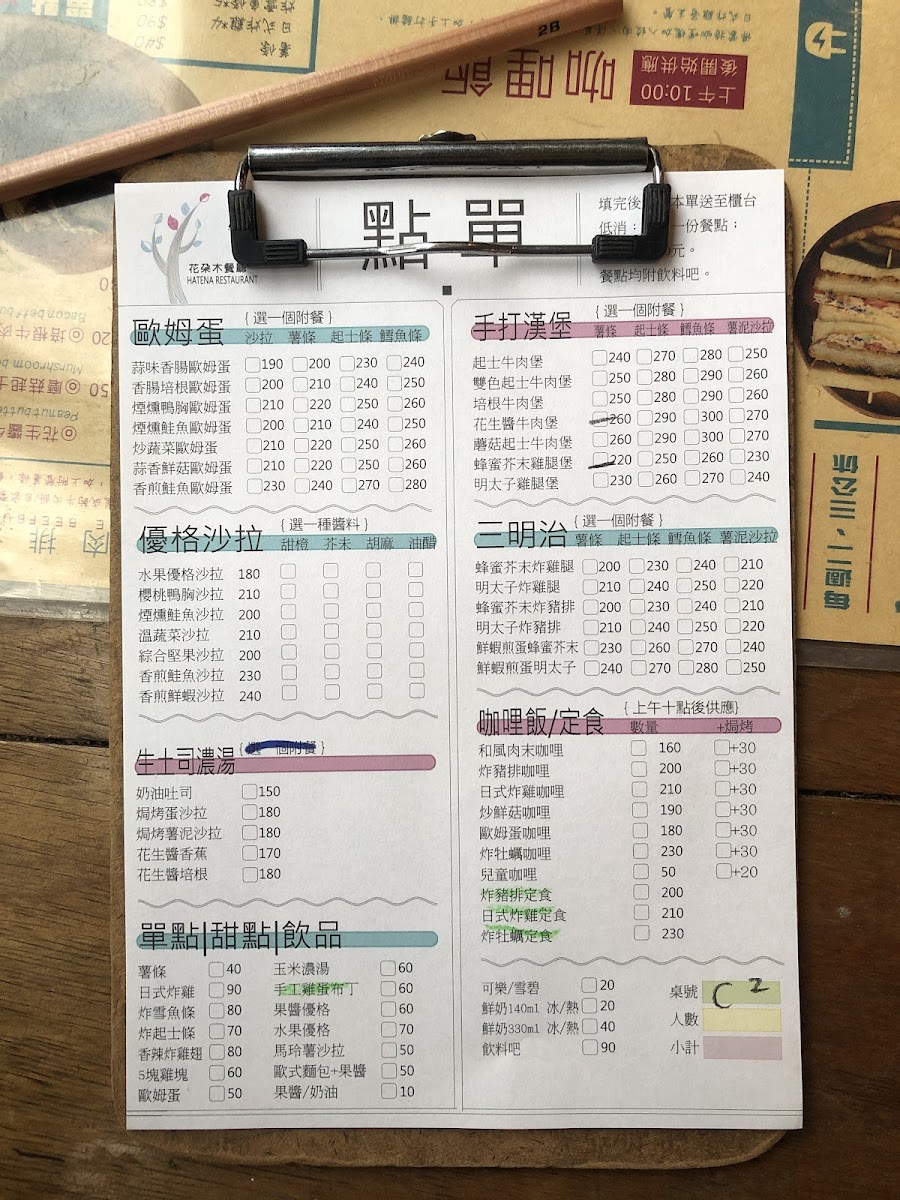 2B
咖哩飯
上午10:00
後開始供應
每週二、三公休
花朵木餐廳
HATENA RESTAURANT
點 單
填完後 本單送至櫃台
低消: 一份餐點;
元。
餐點均附飲料吧。
歐姆蛋 {選一個附餐}
沙拉 薯條 起士條 鱈魚條
蒜味香腸歐姆蛋 190 200 230 240
香腸培根歐姆蛋 200 210 240 250
煙燻鴨胸歐姆蛋 210 220 250 260
煙燻鮭魚歐姆蛋 200 210 240 250
炒蔬菜歐姆蛋 210 220 250 260
蒜香鮮菇歐姆蛋 210 220 250 260
香煎鮭魚歐姆蛋 230 240 270 280
優格沙拉 {選一種醬料}
甜橙 芥末 胡麻 油醋
水果優格沙拉 180
櫻桃鴨胸沙拉 210
煙燻鮭魚沙拉 200
溫蔬菜沙拉 210
綜合堅果沙拉 200
香煎鮭魚沙拉 230
香煎鮮蝦沙拉 240
生土司濃湯 {選一個附餐}
奶油吐司 150
焗烤蛋沙拉 180
焗烤薯泥沙拉 180
花生醬香蕉 170
花生醬培根 180
單點|甜點|飲品
薯條 40 玉米濃湯 60
日式炸雞 90 手工雞蛋布丁 60
炸雪魚條 80 果醬優格 60
炸起士條 70 水果優格 70
香辣炸雞翅 80 馬玲薯沙拉 50
5塊雞塊 60 歐式麵包+果醬 50
歐姆蛋 50 果醬/奶油 10
手打漢堡 {選一個附餐}
薯條 起士條 鱈魚條 薯泥沙拉
起士牛肉堡 240 270 280 250
雙色起士牛肉堡 250 280 290 260
培根牛肉堡 250 280 290 260
花生醬牛肉堡 260 290 300 270
蘑菇起士牛肉堡 260 290 300 270
蜂蜜芥末雞腿堡 220 250 260 230
明太子雞腿堡 230 260 270 240
三明治 {選一個附餐}
薯條 起士條 鱈魚條 薯泥沙拉
蜂蜜芥末炸雞腿 200 230 240 210
明太子炸雞腿 210 240 250 220
蜂蜜芥末炸豬排 200 230 240 210
明太子炸豬排 210 240 250 220
鮮蝦煎蛋蜂蜜芥末 230 260 270 240
鮮蝦煎蛋明太子 240 270 280 250
咖哩飯/定食 {上午十點後供應}
數量 +焗烤
和風肉末咖哩 160 +30
炸豬排咖哩 200 +30
日式炸雞咖哩 210 +30
炒鮮菇咖哩 190 +30
歐姆蛋咖哩 180 +30
炸牡蠣咖哩 230 +30
兒童咖哩 50 +20
炸豬排定食 200
日式炸雞定食 210
炸牡蠣定食 230
可樂/雪碧 20
鮮奶140ml 冰/熱 20
鮮奶330ml 冰/熱 40
飲料吧 90
桌號 C2
人數
小計